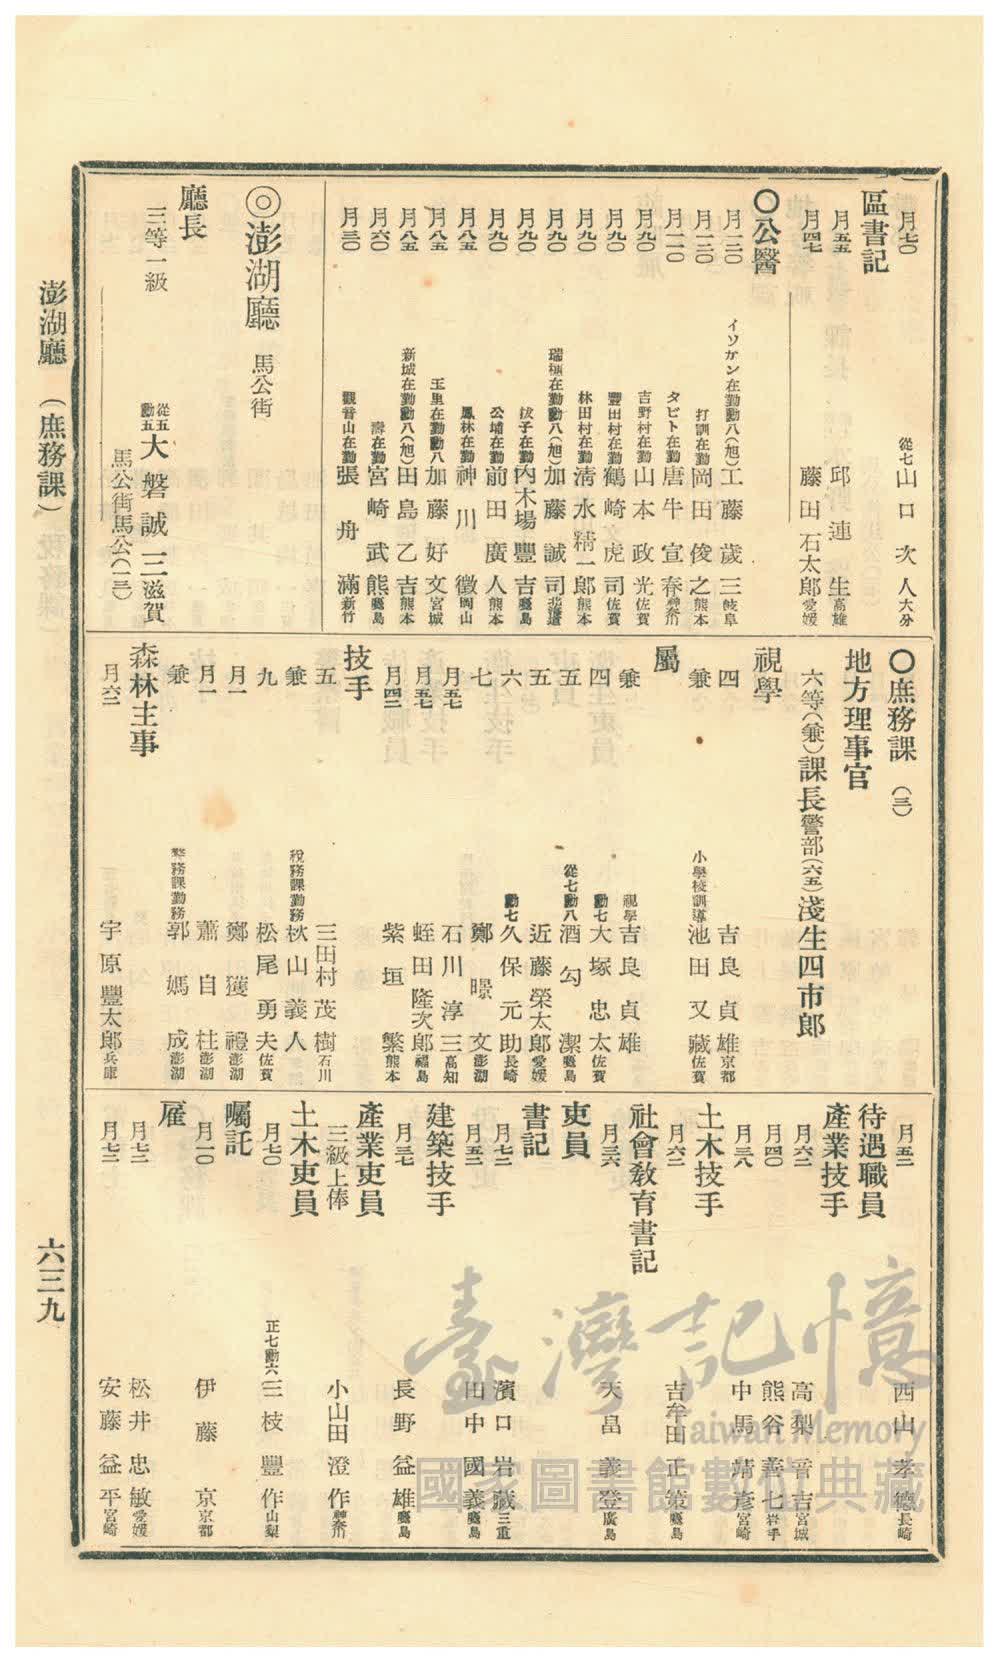 月七〇 從七 山口次人 大分
區書記
月五五 邱連生 高雄
月四七 藤田石太郎 愛媛
〇公醫
月一二〇 イソガン在勤勳八(旭) 工藤歲三 岐阜
月一二〇 打訓在勤 岡田俊之 熊本
月一一〇 タビト在勤 唐牛宣春 神奈川
月九〇 吉野村在勤 山本政光 佐賀
月九〇 豐田村在勤 鶴崎文虎司 佐賀
月九〇 林田村在勤 淸水精一郞 熊本
月九〇 瑞穗在勤勳八(旭) 加藤誠司 北海道
月九〇 拔子在勤 內木場豐吉 鹿兒島
月九〇 公埔在勤 前田廣人 熊本
月八五 鳳林在勤 神川徵 岡山
月八五 玉里在勤勳八 加藤好文 宮城
月八五 新城在勤勳八(旭) 田島乙吉 熊本
月六〇 壽在勤 宮崎武熊 鹿兒島
月三〇 觀音山在勤 張舟滿 新竹
◎澎湖廳 馬公街
廳長
三等一級 從五勳五 大磐誠三 滋賀
馬公街馬公(一二)
〇庶務課 (三)
地方理事官
六等(兼)課長警部(六五)淺生四市郎
視學
四 吉良貞雄 京都
兼 小學校訓導 池田又藏 佐賀
屬
兼 視學 吉良貞雄
四 勳七 大塚忠太 佐賀
五 從七勳八 酒勾潔 鹿兒島
五 近藤榮太郞 愛媛
六 勳七 久保元助 長崎
七 鄭暻文 澎湖
月五七 石川淳三 高知
月五七 蛭田隆次郞 福島
月四二 紫垣繁 熊本
技手
五 三田村茂樹 石川
兼 稅務課勤務 秋山義人
九 松尾勇夫 佐賀
月一 鄭獲禮 澎湖
月一 蕭自桂 澎湖
兼 警務課勤務 郭媽成 澎湖
森林主事
月六二 宇原豐太郞 兵庫
月五二 西山孝德 長崎
待遇職員
產業技手
月六二 高梨晉吉 宮城
月四〇 熊谷善七 岩手
月三八 中馬靖彥 宮崎
土木技手
月六二 吉牟田正策 鹿兒島
社會敎育書記
月三六 天畠義登 廣島
吏員
書記
月七二 濱口岩藏 三重
月五二 田中國義 鹿兒島
建築技手
月三七 長野益雄 鹿兒島
產業吏員
三級上俸 小山田澄作 神奈川
土木吏員
月七〇 正七勳六 三枝豐作 山梨
囑託
月一〇 伊藤京 京都
雇
月七二 松井忠敏 愛媛
月七二 安藤益平 宮崎
澎湖廳 (庶務課)
六三九
臺灣記憶
Taiwan Memory
國家圖書館數位典藏